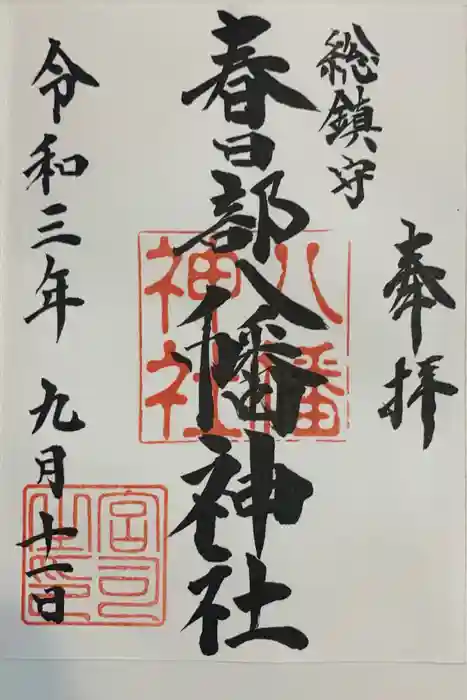 奉拝
総鎮守
春日部八幡神社
令和三年九月十一日
八幡
神社
宮司
之印